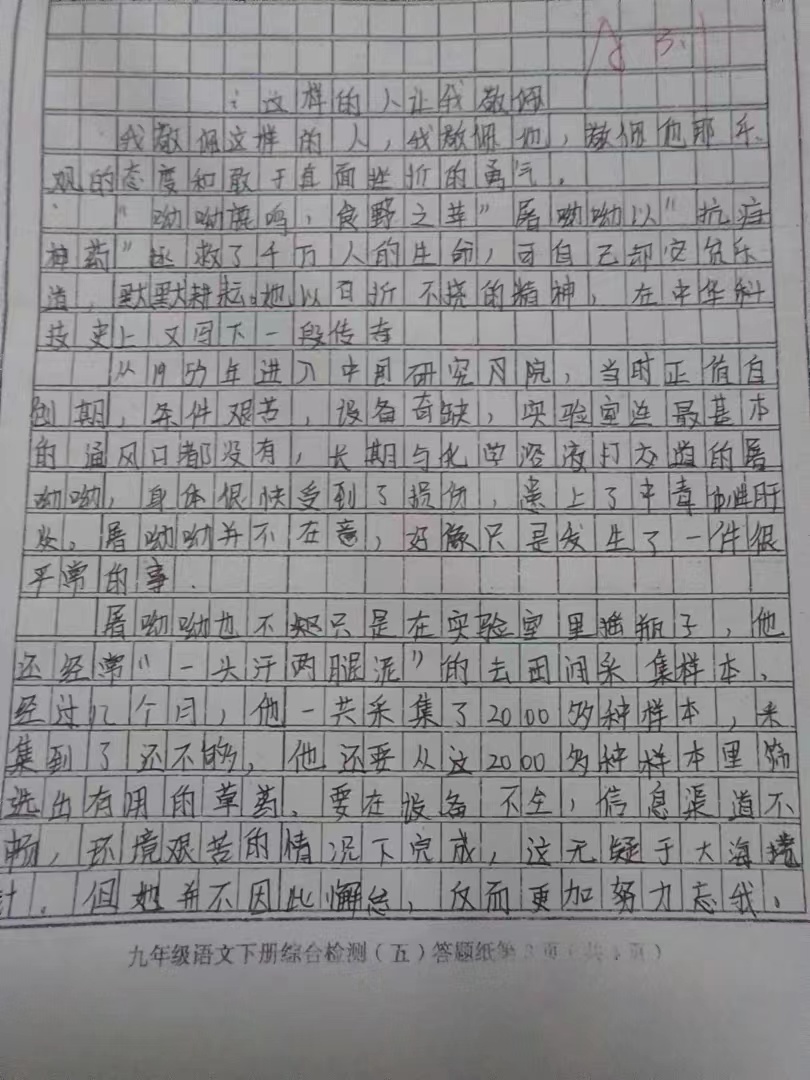 这样的人让我敬佩
我敬佩这样的人，我敬佩他，敬佩他那乐
观的态度和敢于直面挫折的勇气。
“呦呦鹿鸣，食野之苹”屠呦呦以“抗疟
神药”拯救了千万人的生命，可自己却安贫乐
道，默默耕耘。她以百折不挠的精神，在中华科
技史上又写下一段传奇
从1955年进入中国研究院，当时正值自
创期，条件艰苦，设备奇缺，实验室连最基本
的通风口都没有，长期与化学溶液打交道的屠
呦呦，身体很快受到了损伤，患上了中毒性肝
炎。屠呦呦并不在意，好像只是发生了一件很
平常的事.
屠呦呦也不只是在实验室里摇瓶子，他
还经常“一头汗两腿泥”的去田间采集样本、
经过12个月，他一共采集了2000多种样本，采
集到了还不够，他还要从这2000多种样本里筛
选出有用的草药、要在设备不全，信息渠道不
畅，环境艰苦的情况下完成，这无疑于大海捞
针.但她并不因此懈怠，反而更加努力忘我，
九年级语文下册综合检测（五）答题纸第3页（共4页）